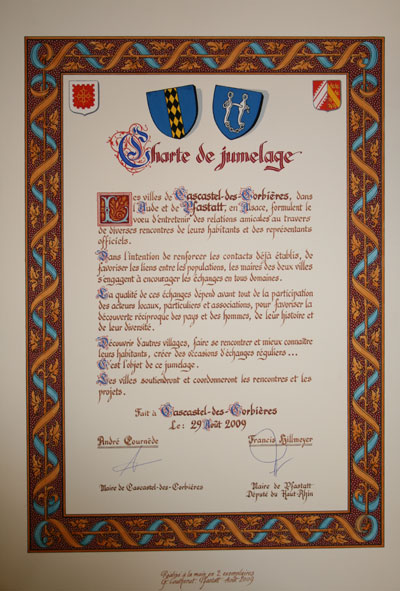 Charte de jumelage
Les villes de Cascastel-des-Corbières, dans
l'Aude et de Pfastatt, en Alsace, formulent le
voeu d'entretenir des relations amicales au travers
de diverses rencontres de leurs habitants et des représentants
officiels.
Dans l'intention de renforcer les contacts déjà établis, de
favoriser les liens entre les populations, les maires des deux villes
s'engagent à encourager les échanges en tous domaines.
La qualité de ces échanges dépend avant tout de la participation
des acteurs locaux, particuliers et associations, pour favoriser la
découverte réciproque des pays et des hommes, de leur histoire et
de leur diversité.
Découvrir d'autres villages, faire se rencontrer et mieux connaître
leurs habitants, créer des occasions d'échanges réguliers...
C'est l'objet de ce jumelage.
Les villes soutiendront et coordonneront les rencontres et les
projets.
Fait à Cascastel-des-Corbières
Le : 29 Août 2009
André Cournède
Francis Hillmeyer
Maire de Cascastel-des-Corbières
Maire de Pfastatt
Député du Haut-Rhin
à la main en 2 exemplaires
Pfastatt Août 2009